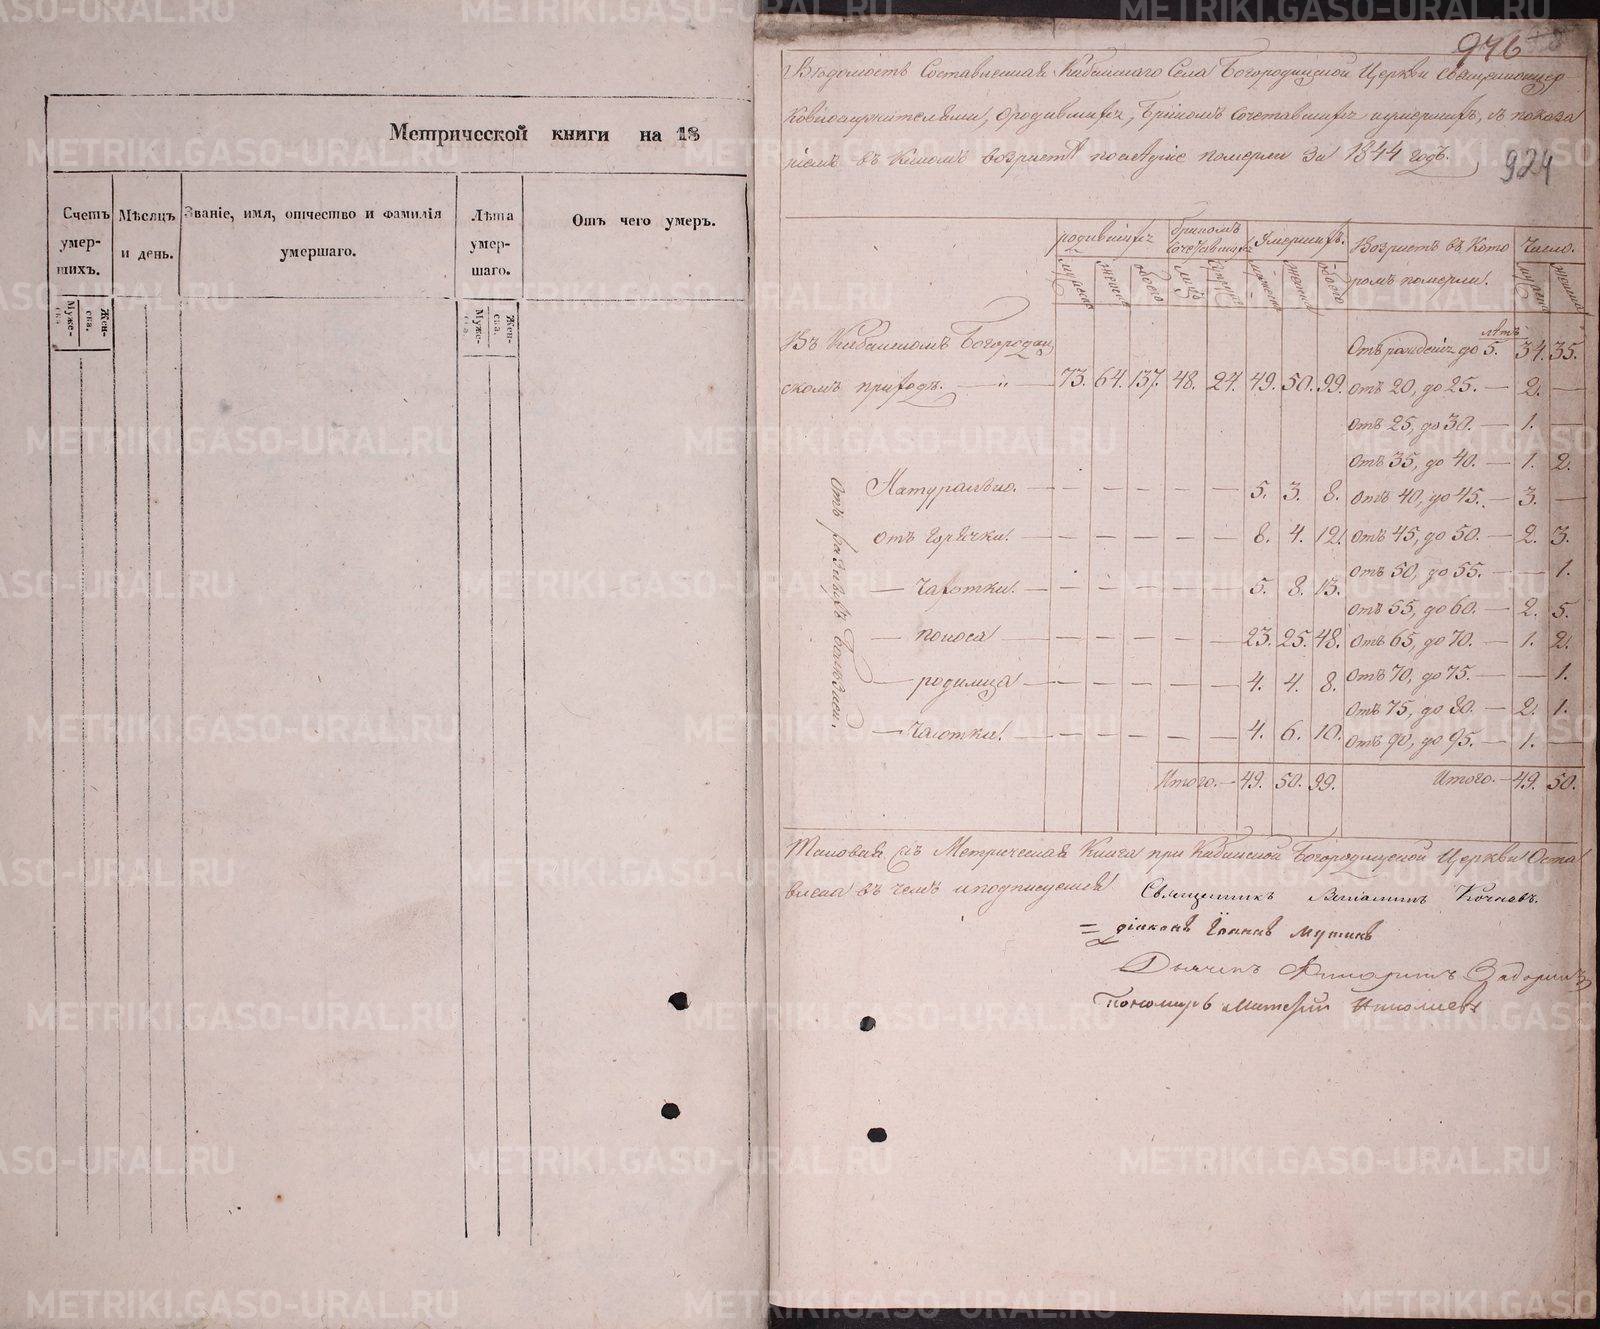 Метрической книги на 18
Счетъ умер-шихъ.
Мѣсяцъ и день.
Званіе, имя, отчество и фамилія умершаго.
Лѣта умер-шаго.
Отъ чего умеръ.
Муже-ска.
Жен-ска.
Муже-ска.
Жен-ска.
976
Вѣдомость Составленная Кабанскаго Села Богородицкой Церкви Священноцер
ковнослужителями, о родившихъ, бракомъ сочетавшихъ и умершихъ, съ показа
ніемъ въ какомъ возрастѣ послѣдніе померли за 1844 годъ.
924
родившихъ
бракомъ сочетавшихъ
Умершихъ.
Возрастъ въ Кото
ромъ померли.
Число.
мужеска женска обоего
мужеска женска обоего
мужеска женска
Въ Кабанскомъ Богородиц
скомъ приходѣ. — " — 73. 64. 137. 48. 24. 49. 50. 99.
Отъ разныхъ болѣзней.
Натурально. — — — — — — 5. 3. 8.
отъ горячки. — — — — — — 8. 4. 12.
— Чахотки. — — — — — — 5. 8. 13.
— поноса — — — — — — 23. 25. 48.
— родимца — — — — — — 4. 4. 8.
— — — — — — 4. 6. 10.
Итого. — 49. 50. 99.
лѣтъ
Отъ рожденія до 5. 34. 35.
отъ 20, до 25. — 2. —
отъ 25, до 30. — 1. —
отъ 35, до 40. — 1. 2.
отъ 40, до 45. — 3. —
отъ 45, до 50. — 2. 3.
отъ 50, до 55. — — 1.
отъ 55, до 60. — 2. 5.
отъ 65, до 70. — 1. 2.
отъ 70, до 75. — — 1.
отъ 75, до 80. — 2. 1.
отъ 90, до 95. — 1. —
Итого. — 49. 50.
Таковая съ Метрическая Книга при Кабанской Богородицкой Церкви Оста
влена въ чемъ и подписуемся
Священникъ Веніаминъ Кочневъ.
= діаконъ Іоаннъ
Дьячекъ
Пономарь Матѳей Николаевъ
METRIKI.GASO-URAL.RU